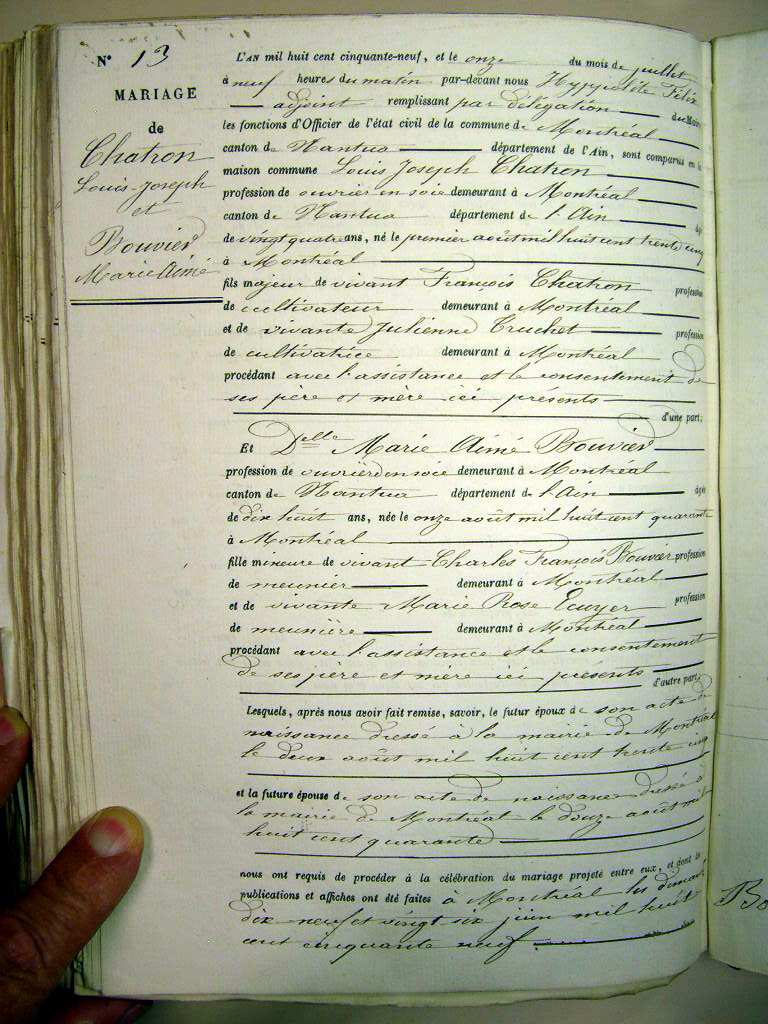 N° 13
MARIAGE
de
Chatron
Louis-Joseph
et
Bouvier
Marie Aimé
L'AN mil huit cent cinquante-neuf, et le onze du mois de juillet
à neuf heures du matin par-devant nous Hyppolite Félix
adjoint remplissant par délégation du Maire
les fonctions d'Officier de l'état civil de la commune de Montréal
canton de Nantua département de l'Ain, sont comparus en la
maison commune Louis Joseph Chatron
profession de ouvrier en soie demeurant à Montréal
canton de Nantua département de l'Ain âgé
de vingt quatre ans, né le premier août mil huit cent trente cinq
à Montréal
fils majeur de vivant François Chatron profession
de cultivateur demeurant à Montréal
et de vivante Julienne Truchet profession
de cultivatrice demeurant à Montréal
procédant avec l'assistance et le consentement de
ses père et mère ici présents
d'une part;
Et Delle Marie Aimé Bouvier
profession de ouvrière en soie demeurant à Montréal
canton de Nantua département de l'Ain âgée
de dix huit ans, née le onze août mil huit cent quarante
à Montréal
fille mineure de vivant Charles François Bouvier profession
de meunier demeurant à Montréal
et de vivante Marie Rose Ecuyer profession
de meunière demeurant à Montréal
procédant avec l'assistance et le consentement
de ses père et mère ici présents d'autre part;
Lesquels, après nous avoir fait remise, savoir, le futur époux de son acte de
naissance dressé à la mairie de Montréal
le deux août mil huit cent trente cinq
et la future épouse de son acte de naissance dressé à
la mairie de Montréal le douze août mil
huit cent quarante
nous ont requis de procéder à la célébration du mariage projeté entre eux, et dont les
publications et affiches ont été faites à Montréal les dimanc
dix neuf et vingt six juin mil huit
cent cinquante neuf
Bo